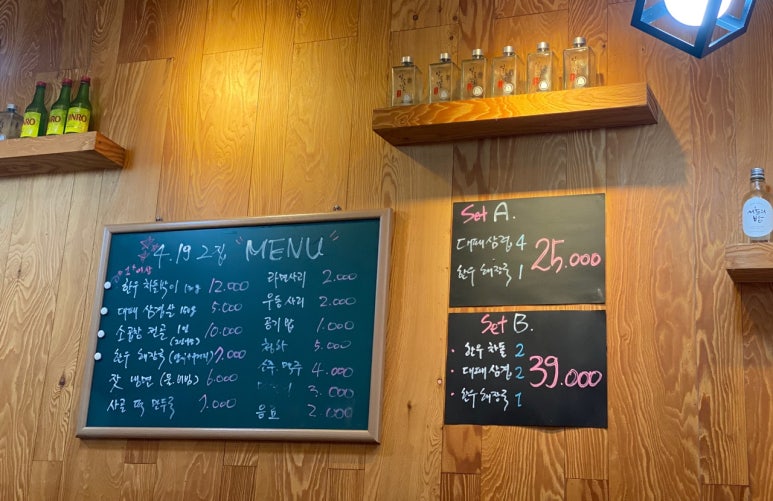 4.19 고집 "MENU"
한우 차돌박이 12.000
대패 삼겹살 5.000
소곱창 전골 1인 10.000
한우 해장국 7.000
잣 냉면 6.000
사골 떡 만두국 7.000
라면사리 2.000
우동 사리 2.000
공기밥 1.000
청하 5.000
소주 맥주 4.000
3.000
음료 2.000
Set A.
대패 삼겹 4
한우 해장국 1
25.000
Set B.
· 한우 차돌 2
· 대패 삼겹 2
· 한우 해장국 1
39.000